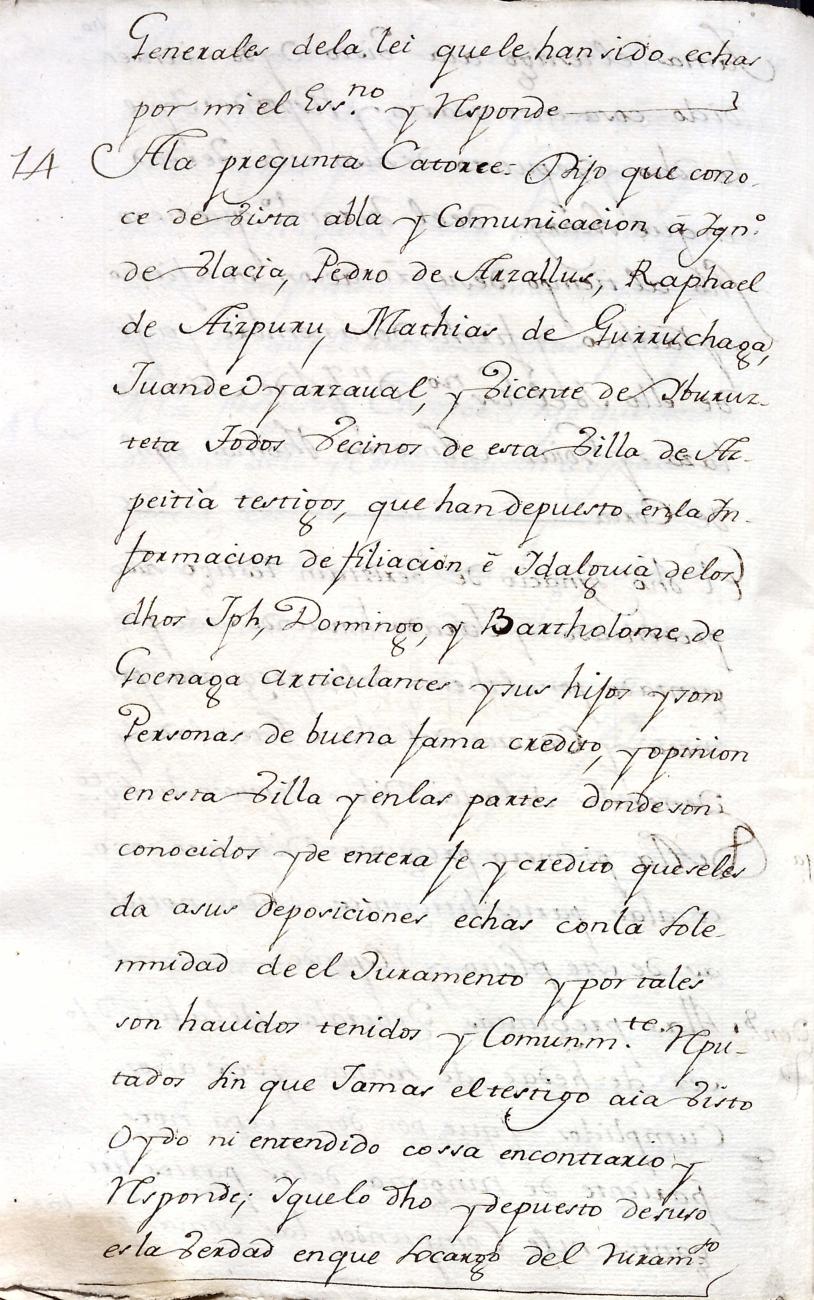 Generales dela lei quele han sido echas
por mi el Ess.no y Responde
14 Ala pregunta Catorce: Dijo que cono-
ce de Vista abla y Comunicacion á Ygn.o
de Vlacia, Pedro de Arzallus, Raphael
de Aizpuru, Mathias de Gurruchaga,
Juan de Oyarzaual, y Vicente de Yburuz-
teta Todos Vecinos de esta Villa de Az-
peitia testigos, que han depuesto en la In-
formacion de filiacion é Idalguia delos
dhos Jph, Domingo, y Bartholome de
Goenaga articulantes y sus hijos y son
Personas de buena fama credito, y opinion
en esta Villa y enlas partes donde son
conocidos y de entera fe y credito que seles
da asus deposiciones echas conla Sole-
mnidad de el Juramento y por tales
son hauidos tenidos y Comunm.te Rpu-
tados sin que Jamas el testigo aia Visto
Oydo ni entendido cossa encontrario y
Responde; Yquelo dho y depuesto desuso
es la Verdad en que Socargo del Juram.to